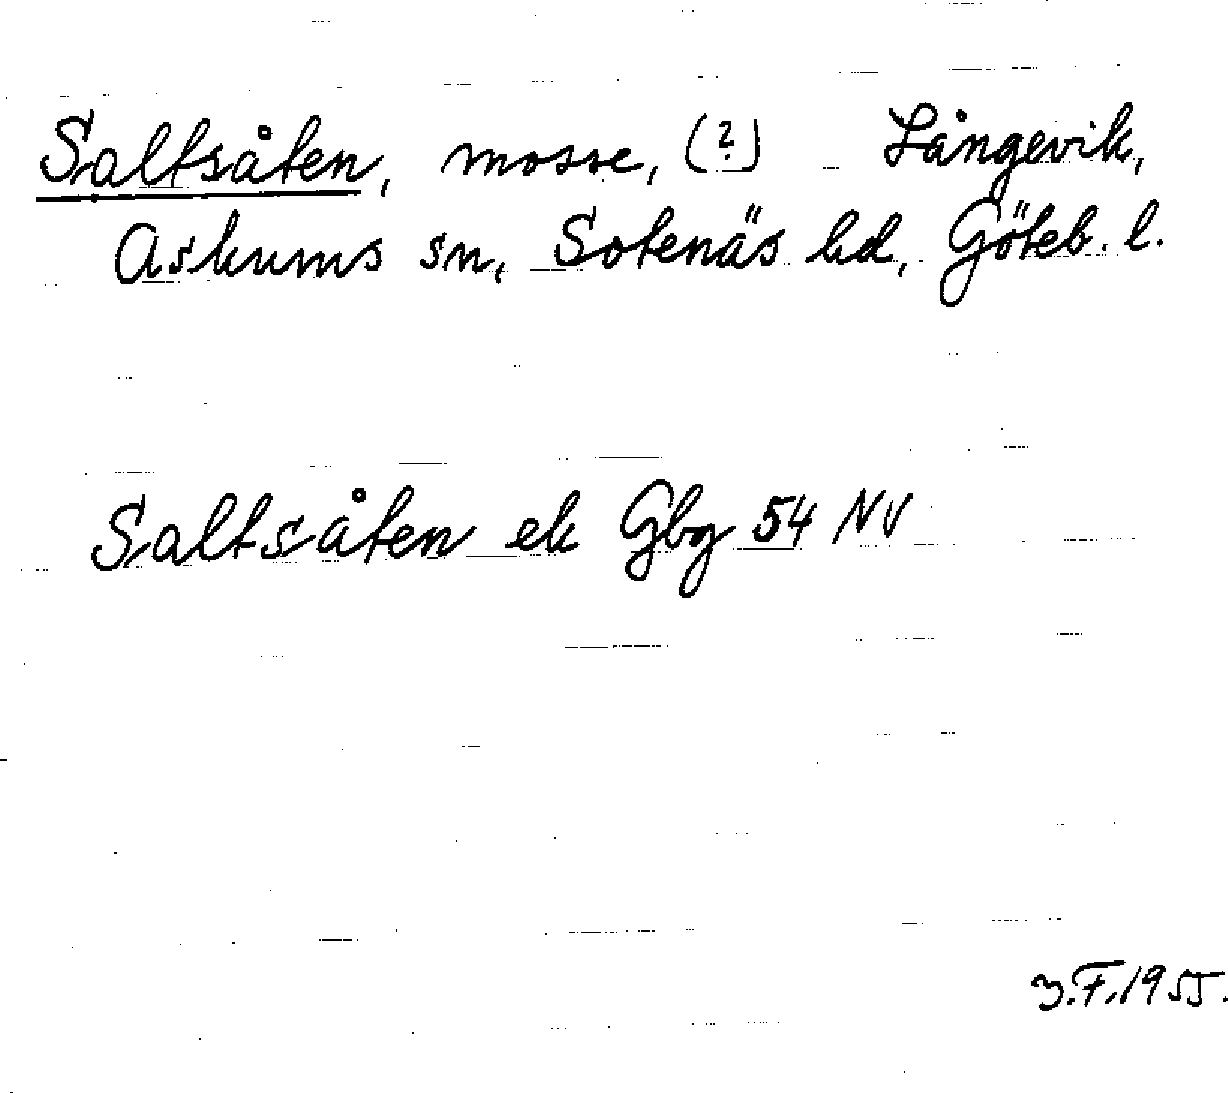 Saltsåten, mosse, (?) - Långevik,
Askums sn, Sotenäs hd, Göteb. l.
Saltsåten ek Gbg 54 NV
3.F.1955.